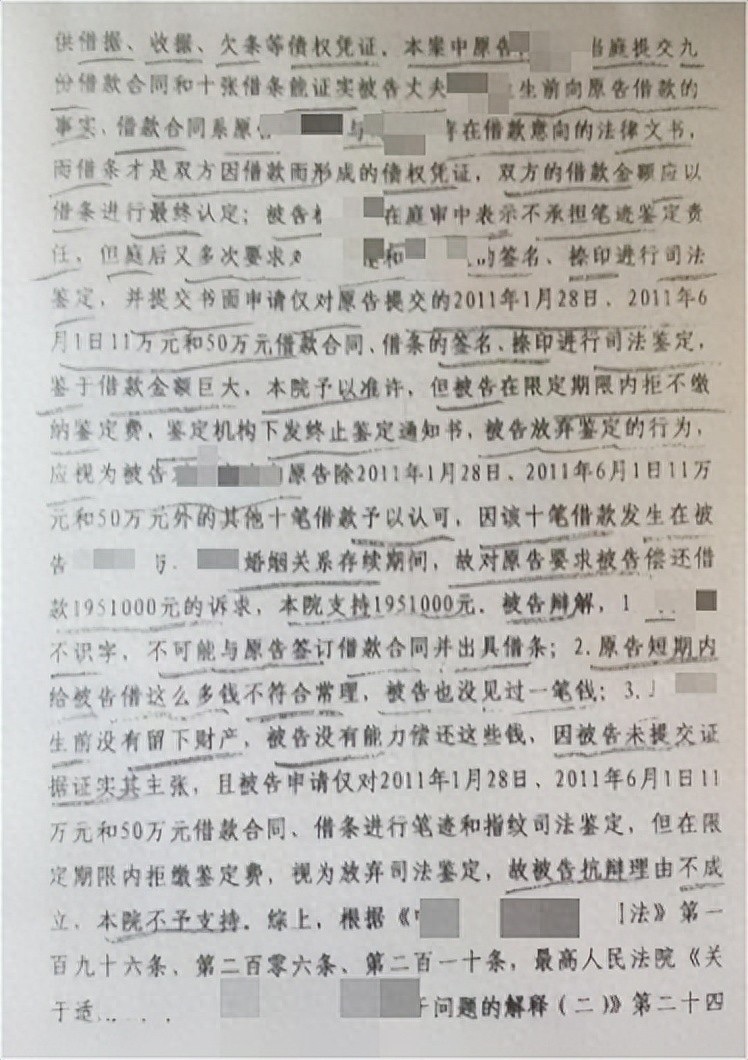 供借据、收据、欠条等债权凭证，本案中原告 当庭提交九
份借款合同和十张借条能证实被告丈夫 生前向原告借款的
事实，借款合同系原 与 存在借款意向的法律文书，
而借条才是双方因借款而形成的债权凭证，双方的借款金额应以
借条进行最终认定；被告 在庭审中表示不承担笔迹鉴定责
任，但庭后又多次要求对 和 的签名、捺印进行司法
鉴定，并提交书面申请仅对原告提交的2011年1月28日、2011年6
月1日11万元和50万元借款合同、借条的签名、捺印进行司法鉴定，
鉴于借款金额巨大，本院予以准许，但被告在限定期限内拒不缴
纳鉴定费，鉴定机构下发终止鉴定通知书，被告放弃鉴定的行为，
应视为被告 原告除2011年1月28日、2011年6月1日11万
元和50万元外的其他十笔借款予以认可，因该十笔借款发生在被
告 与 婚姻关系存续期间，故对原告要求被告偿还借
款1951000元的诉求，本院支持1951000元。被告辩解，1
不识字，不可能与原告签订借款合同并出具借条；2.原告短期内
给被告借这么多钱不符合常理，被告也没见过一笔钱；3.
生前没有留下财产，被告没有能力偿还这些钱，因被告未提交证
据证实其主张，且被告申请仅对2011年1月28日、2011年6月1日11
万元和50万元借款合同、借条进行笔迹和指纹司法鉴定，但在限
定期限内拒缴鉴定费，视为放弃司法鉴定，故被告抗辩理由不成
立，本院不予支持。综上，根据《 法》第一
百九十六条、第二百零六条、第二百一十条，最高人民法院《关
于适 问题的解释（二）》第二十四